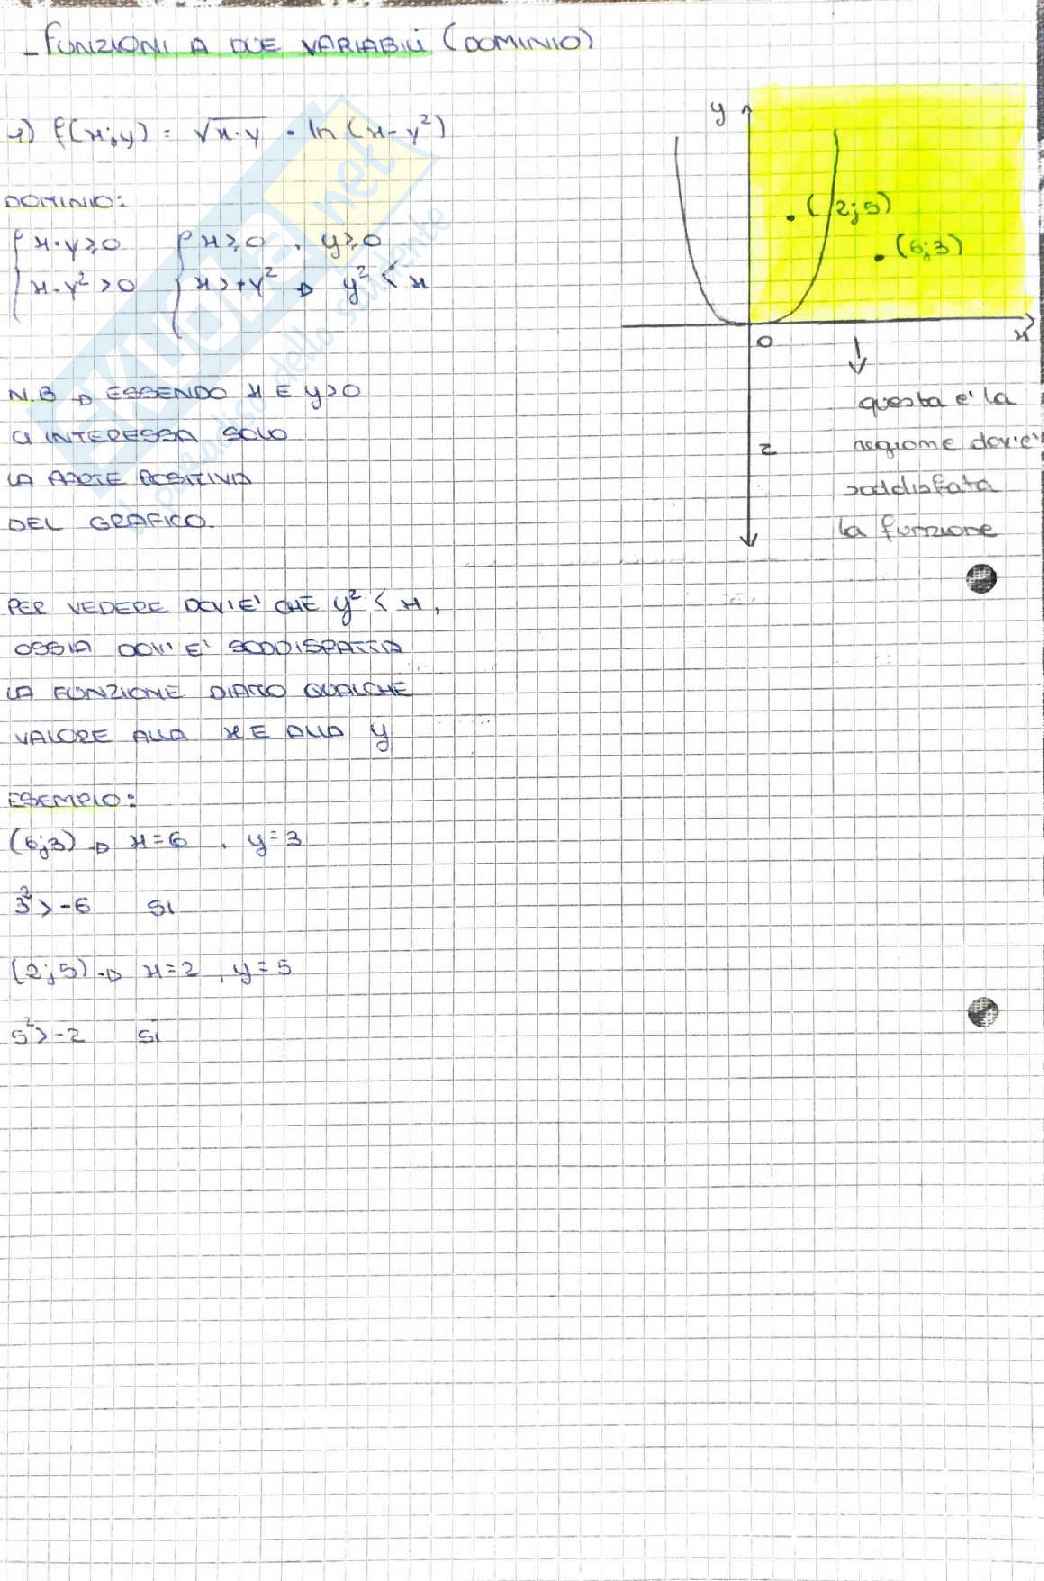 - FUNZIONI A DUE VARIABILI (DOMINIO)
1) f(x;y) = √x·y · ln(x-y²)
DOMINIO:
{ x·y≥0 { x≥0, y≥0
x-y²>0 x>+y² → y²<x
N.B → ESSENDO x E y>0
CI INTERESSA SOLO
LA PARTE POSITIVA
DEL GRAFICO.
PER VEDERE DOV'E' CHE y²<x,
OSSIA DOV'E' SODDISFATTA
LA FUNZIONE DIAMO QUALCHE
VALORE ALLA x E ALLA y
ESEMPIO:
(6;3) → x=6, y=3
3²>-6 SI
(2;5) → x=2, y=5
5²>-2 SI
y
(2;5)
(6;3)
0
x
z
questa e' la
regione dov'e'
soddisfata
la funzione
SKUOLA.net